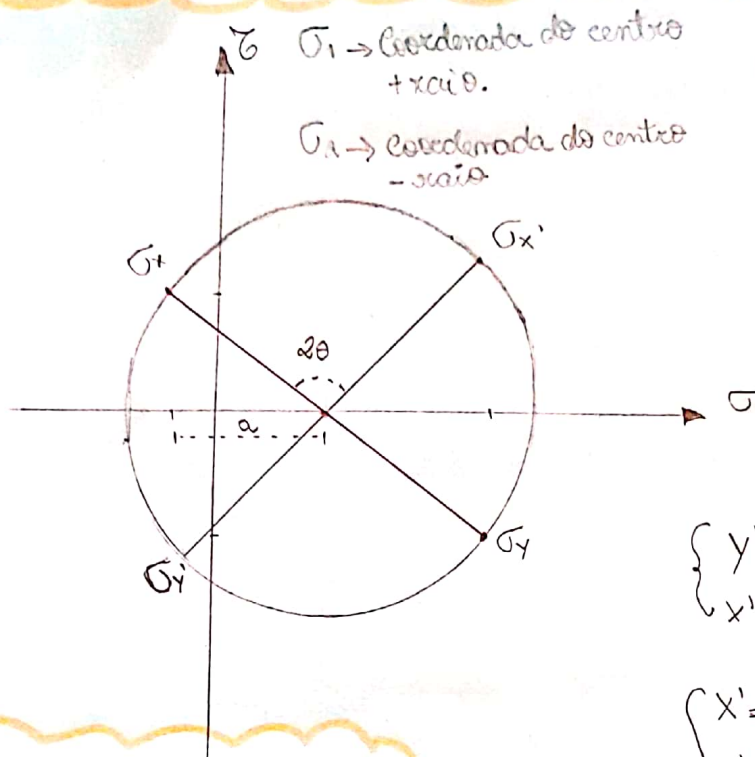 τ σ₁ → Coordenada do centro
+ raio.
σ₂ → coordenada do centro
- raio
σx σx'
2θ
σ
a
σy' σy
{ y'
x'
{ x' =